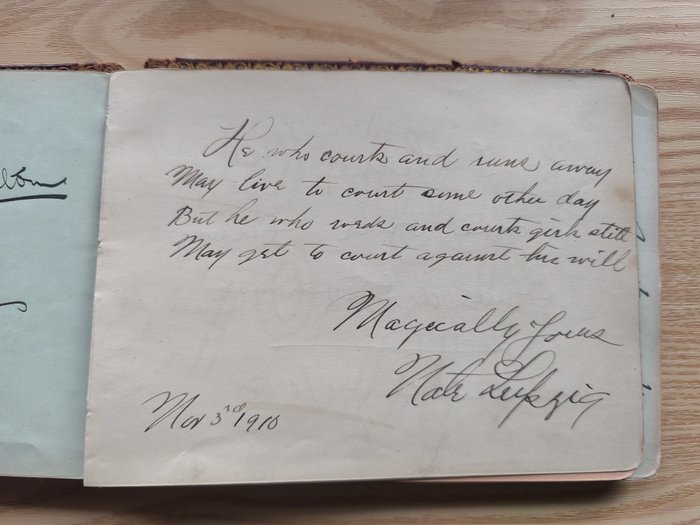 He who courts and runs away
May live to court some other day
But he who weds and courts girls still
May get to court against his will
Magically Yours
Nate Leipzig
Nov 3rd 1910